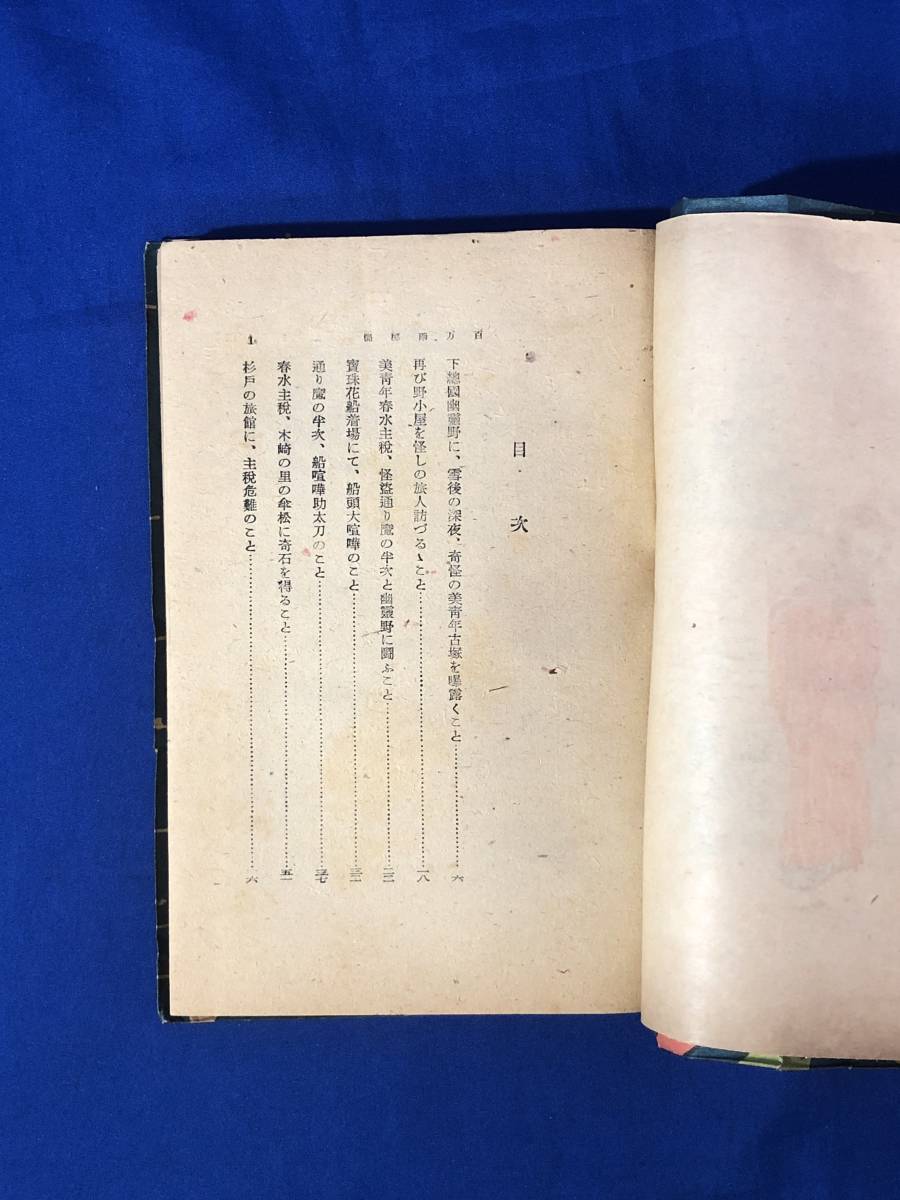 目次
下總國幽靈野に、雪後の深夜、奇怪の美靑年古塚を曝露くこと…………六
再び野小屋を怪しの旅人訪づるゝこと…………一八
美靑年春水主稅、怪盜通り魔の半次と幽靈野に鬪ふこと…………二二
寶珠花船着場にて、船頭大喧嘩のこと…………三二
通り魔の半次、船喧嘩助太刀のこと…………三七
春水主稅、木崎の里の傘松に奇石を得ること…………五一
杉戶の旅館に、主稅危難のこと…………六
百万両
1